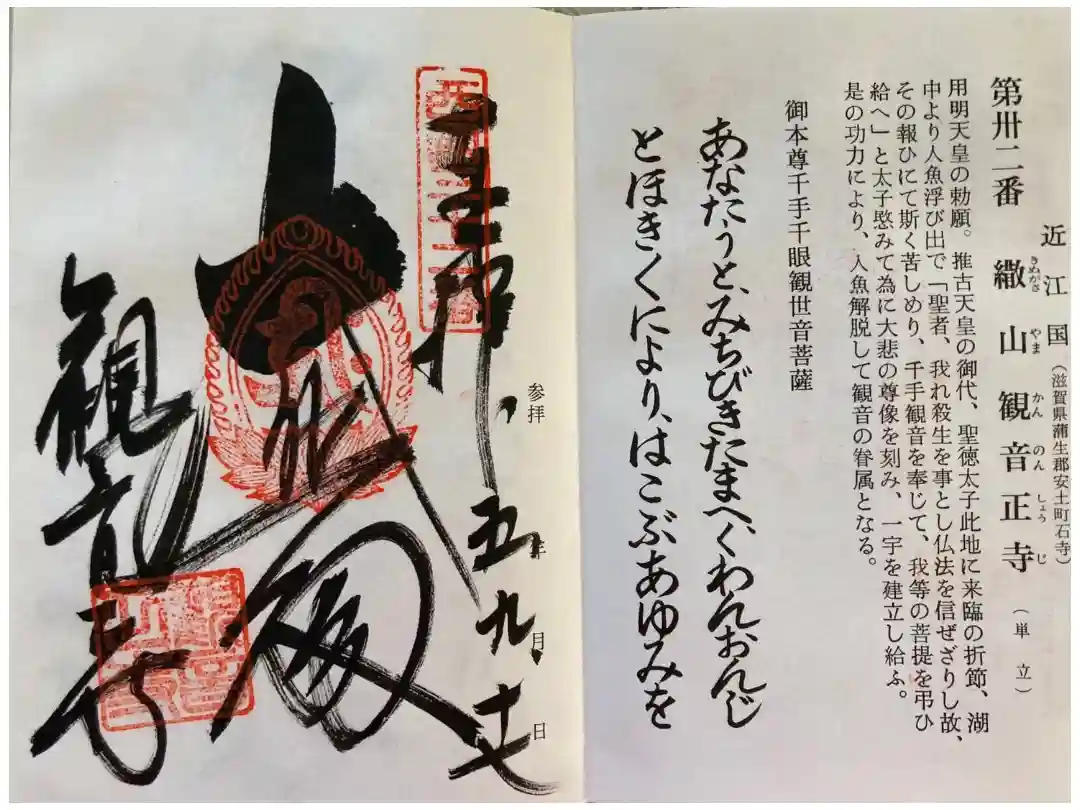 近江国(滋賀県蒲生郡安土町石寺)
第卅二番 繖山観音正寺(単立)
きぬがさ やま かん のん しょう じ
用明天皇の勅願。推古天皇の御代、聖徳太子此地に来臨の折節、湖
中より人魚浮び出で「聖者、我れ殺生を事とし仏法を信ぜざりし故、
その報ひにて斯く苦しめり、千手観音を奉じて、我等の菩提を弔ひ
給へ」と太子愍みて為に大悲の尊像を刻み、一宇を建立し給ふ。
是の功力により、人魚解脱して観音の眷属となる。
御本尊千手千眼観世音菩薩
あなたうと、みちびきたまへ、くわんおんじ
とほきくにより、はこぶあゆみを
参拝
五年九月十七日
観音正寺